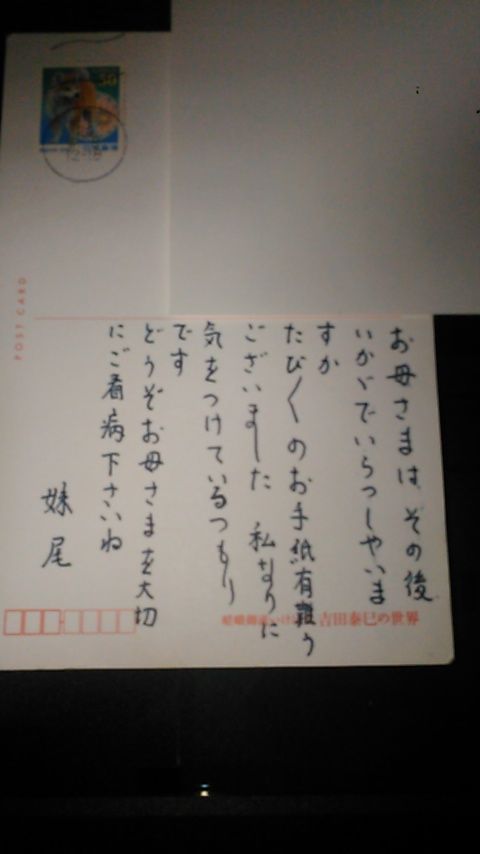 お母さまは その後
いかゞでいらっしやいま
すか
たび〱のお手紙有難う
ございました 私なりに
気をつけているつもり
です
どうぞお母さまを大切
にご看病下さいね
妹尾
POST CARD
50
12-18
吉田泰巳の世界